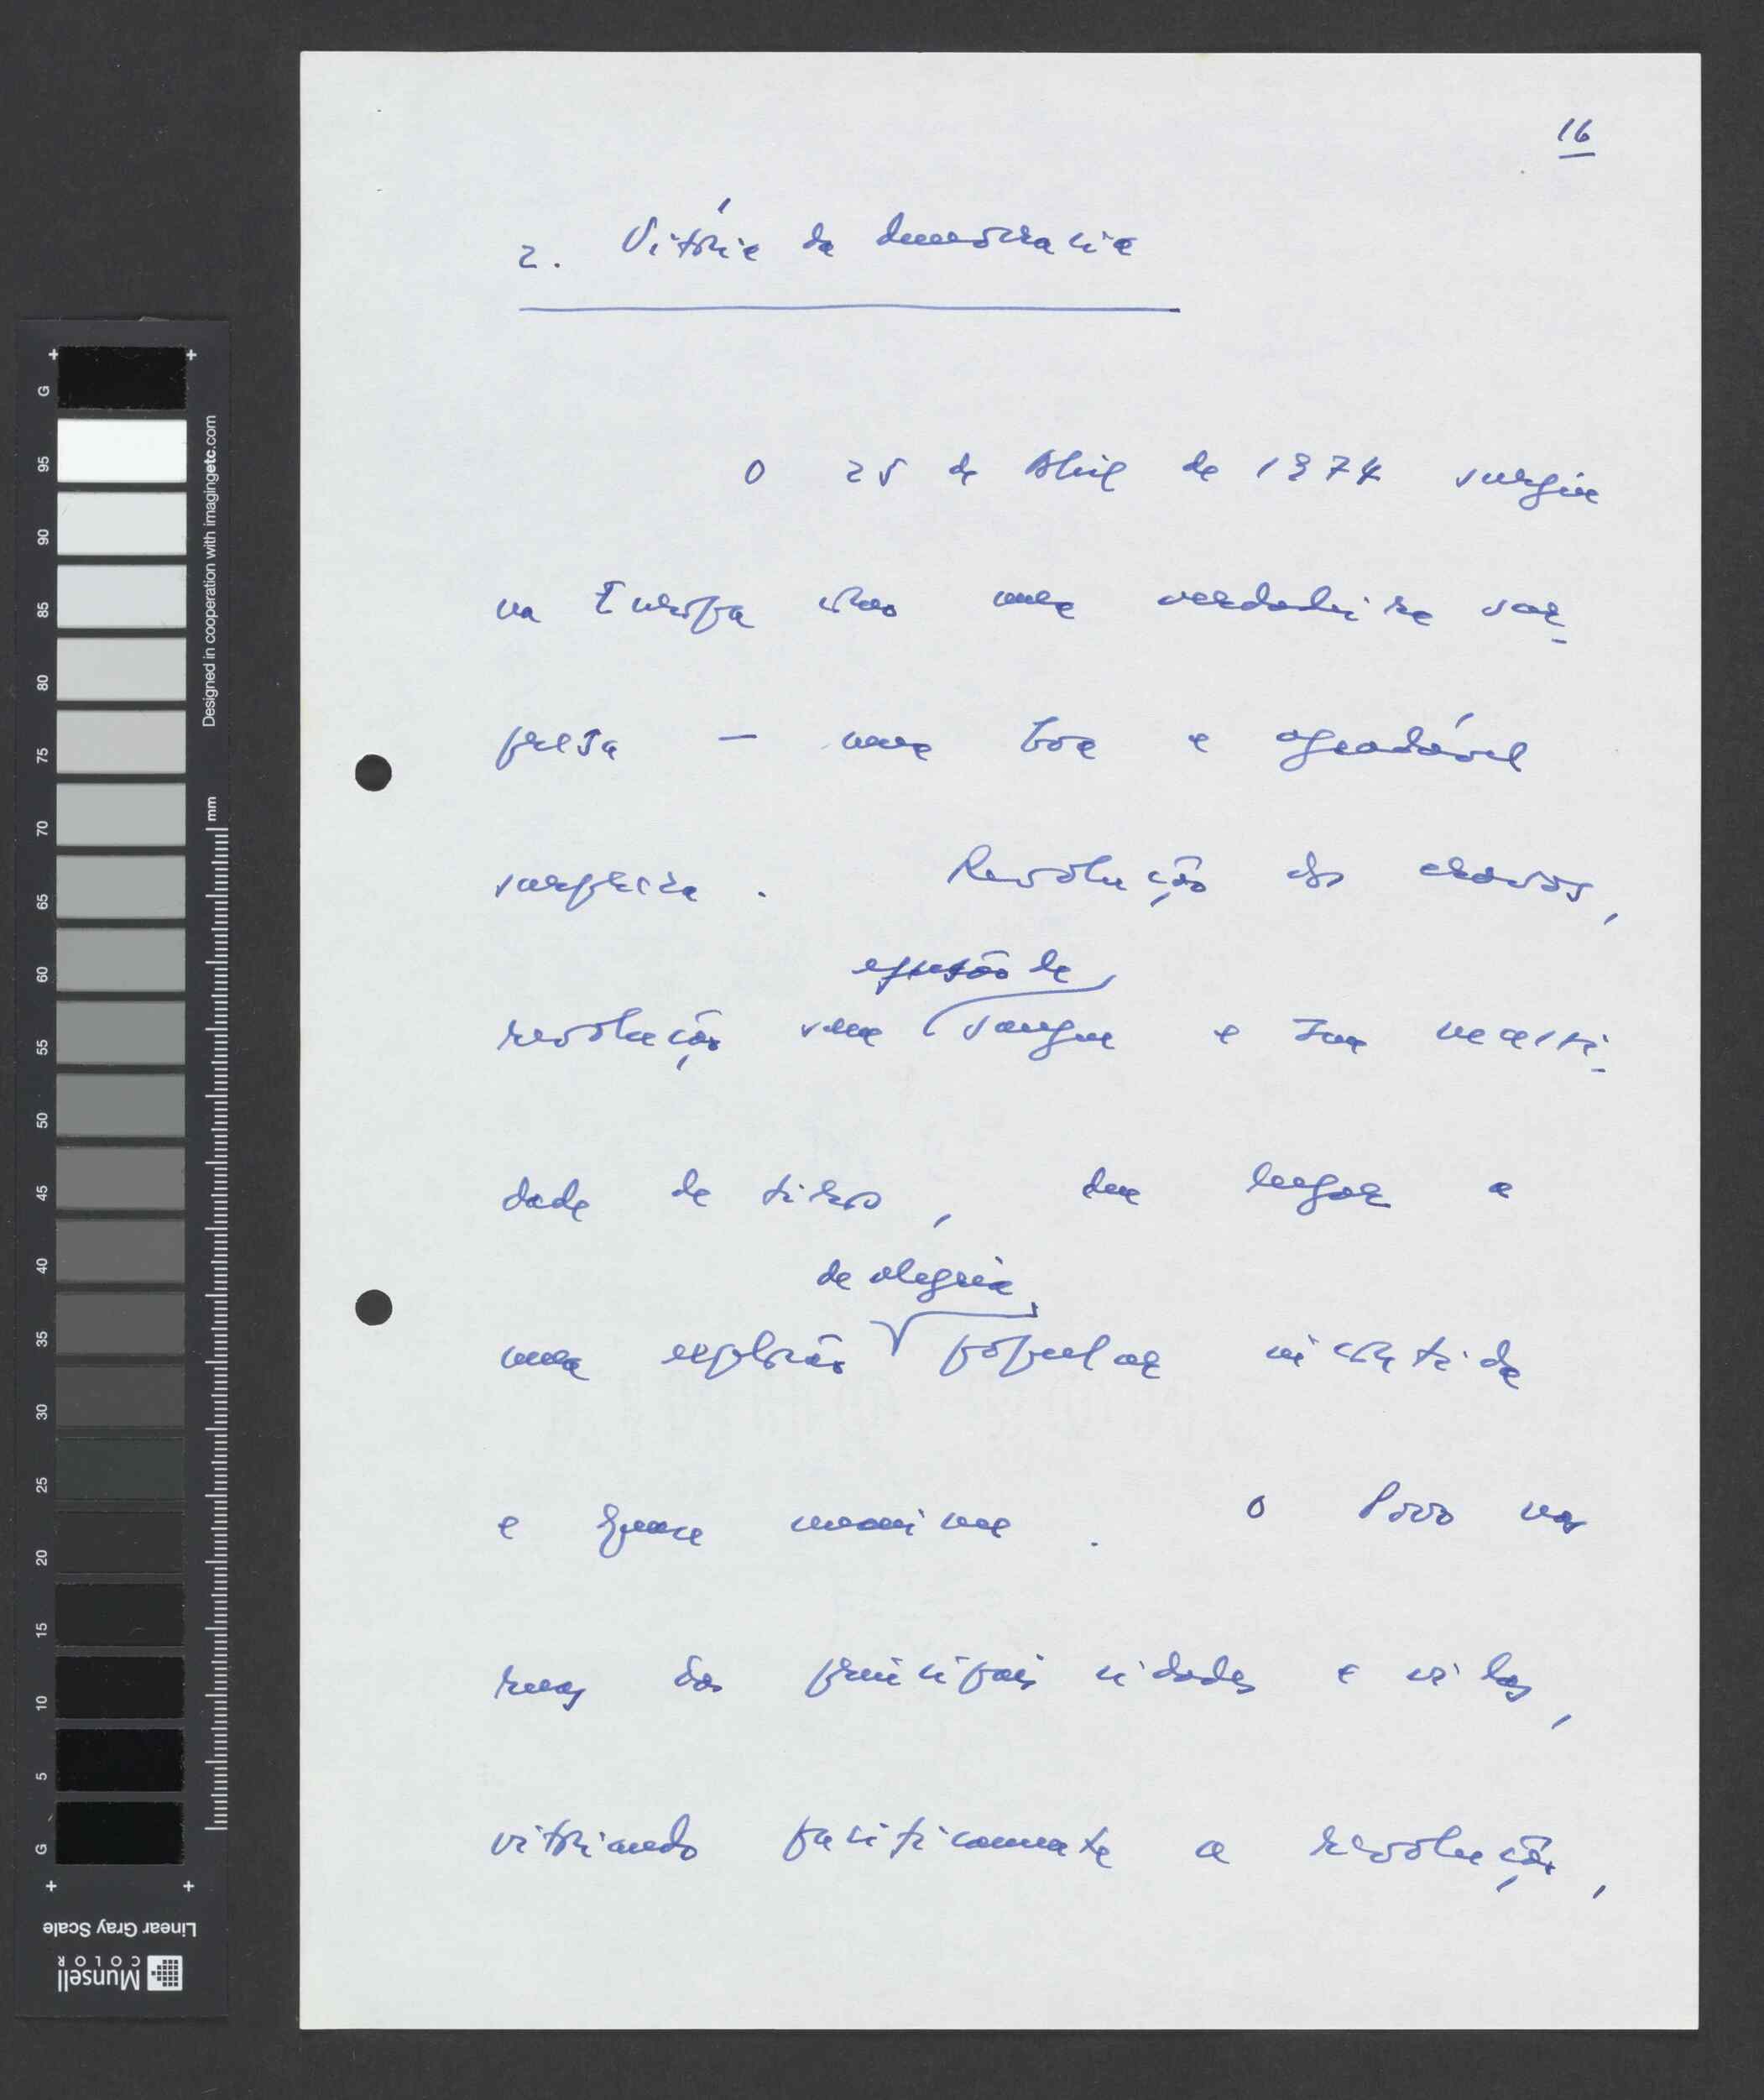 16
2. Vitória da democracia
O 25 de Abril de 1974 surgiu
na Europa como uma verdadeira sur-
presa — uma boa e agradável
surpresa. Revolução dos cravos,
efusão de
revolução sem sangue e sem necessi-
dade de tiros, deu lugar a
de alegria
uma explosão popular incontida
e quase unanime. O Povo nas
ruas das principais cidades e vilas,
vitoriando pacificamente a revolução,
G
95
90
85
80
75
70
65
60
55
50
45
40
35
30
25
20
15
10
5
G
Designed in cooperation with imagingetc.com
mm
Linear Gray Scale
Munsell
COLOR